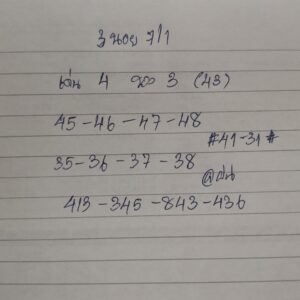 3 นอย 7/1
เด่น 4 รอง 3 (43)
45-46-47-48
#41-31#
35-36-37-38
413-345-843-436